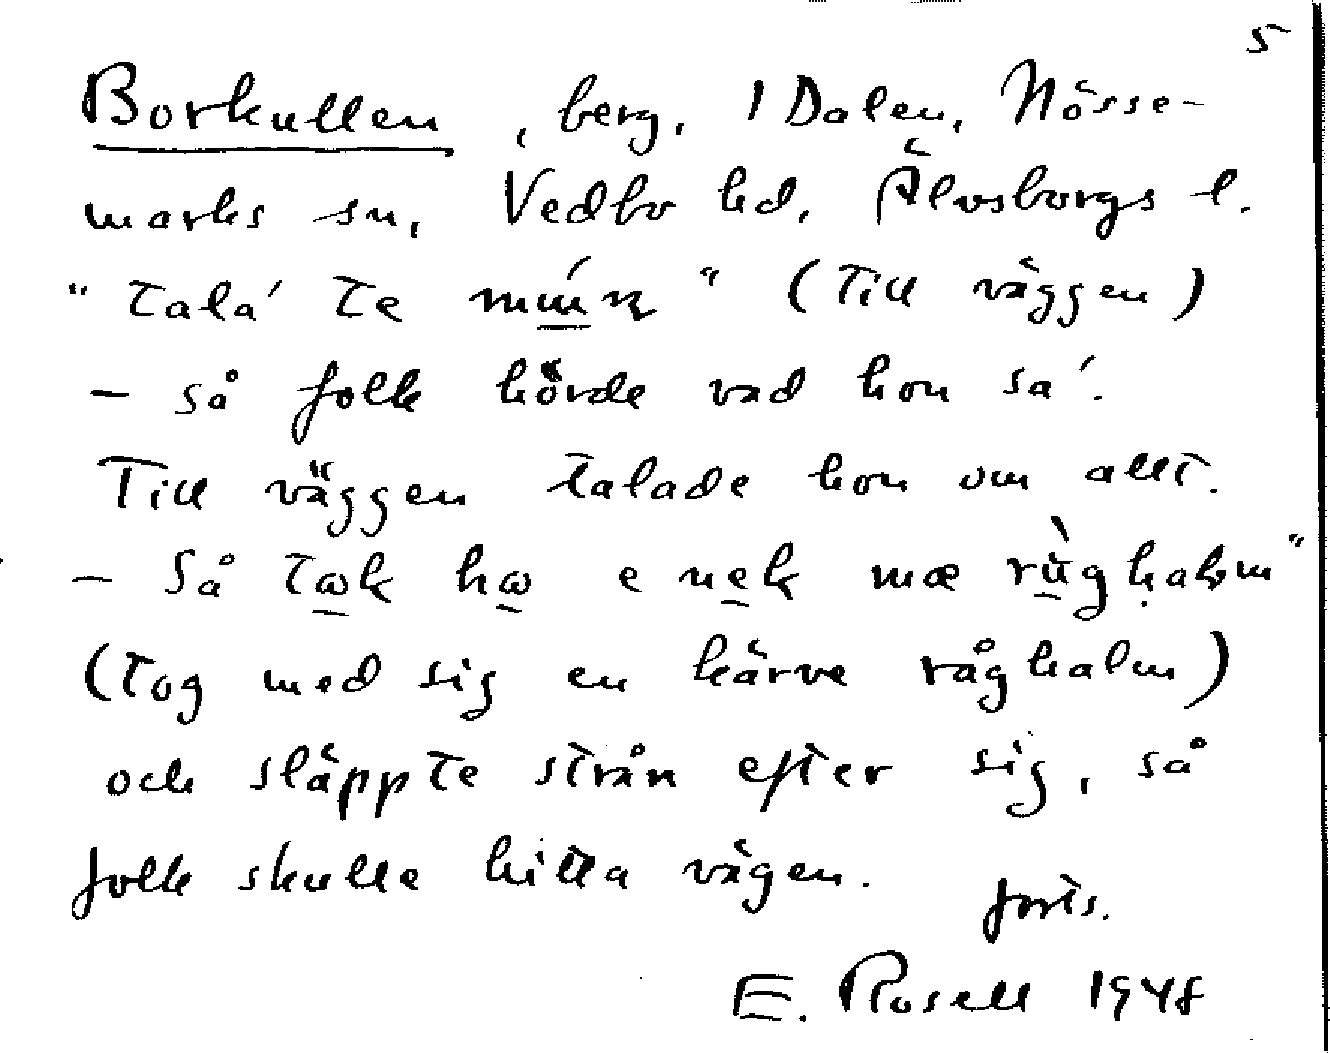 5
Borkullen, berg, 1 Dalen, Nösse-
marks sn, Vedbo hd, Älvsborgs l.
"Tala' te múɷ́n" (Till väggen)
– så folk hörde vad hon sa'.
Till väggen talade hon om allt.
– Så tɷk hɷ e nek mæ rùghalvm"
(Tog med sig en kärve råghalm)
och släppte strån efter sig, så
folk skulle hitta vägen.
forts.
E. Rosell 1948